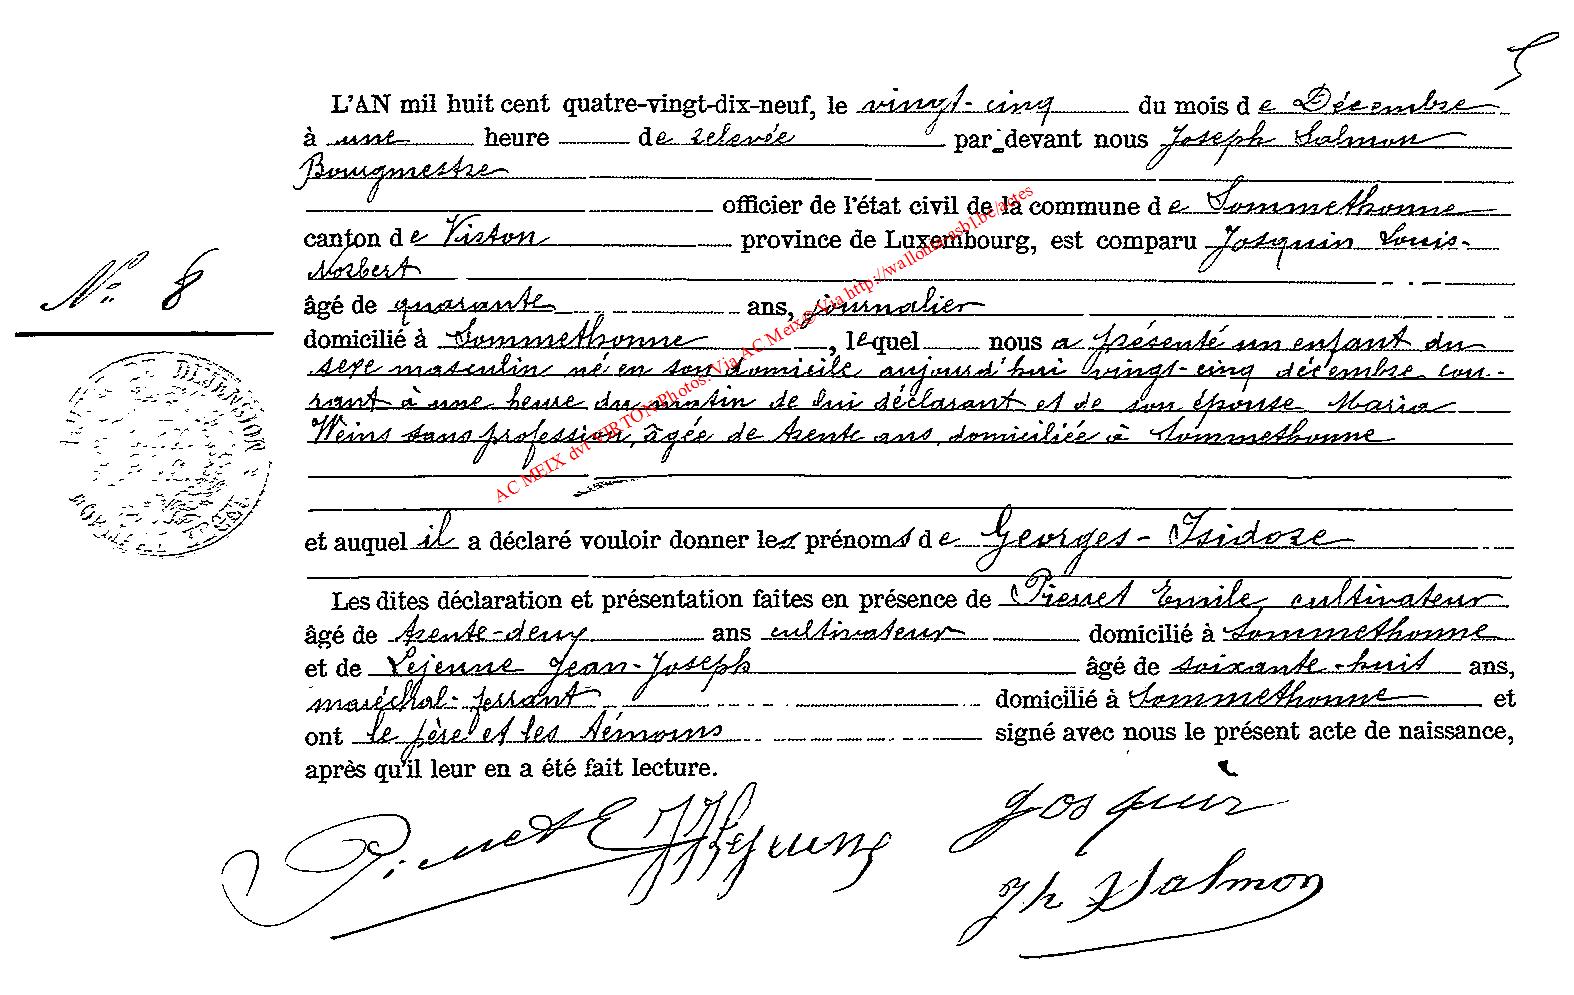 5
L'AN mil huit cent quatre-vingt-dix-neuf, le vingt-cinq du mois de Décembre
à une heure de relevée par-devant nous Joseph Salmon
Bourgmestre
officier de l'état civil de la commune de Sommethonne
canton de Virton province de Luxembourg, est comparu Josquin Louis-
Norbert
N° 8
âgé de quarante ans, journalier
domicilié à Sommethonne, lequel nous a présenté un enfant du
sexe masculin né en son domicile aujourd'hui vingt-cinq décembre cou-
rant à une heure du matin de lui déclarant et de son épouse Maria
Weins sans profession, âgée de trente ans, domiciliée à Sommethonne
et auquel il a déclaré vouloir donner les prénoms de Georges-Isidore
Les dites déclaration et présentation faites en présence de Pierret Emile, cultivateur
âgé de trente-deux ans cultivateur domicilié à Sommethonne
et de Lejeune Jean-Joseph âgé de soixante-huit ans,
maréchal-ferrant domicilié à Sommethonne et
ont le père et les témoins signé avec nous le présent acte de naissance,
après qu'il leur en a été fait lecture.
Josquin
JJ Lejeune
Jh Salmon
AC MEIX dvt VIRTON Photos: Via AC Meix © Via http://wallonia-asbl.be/actes